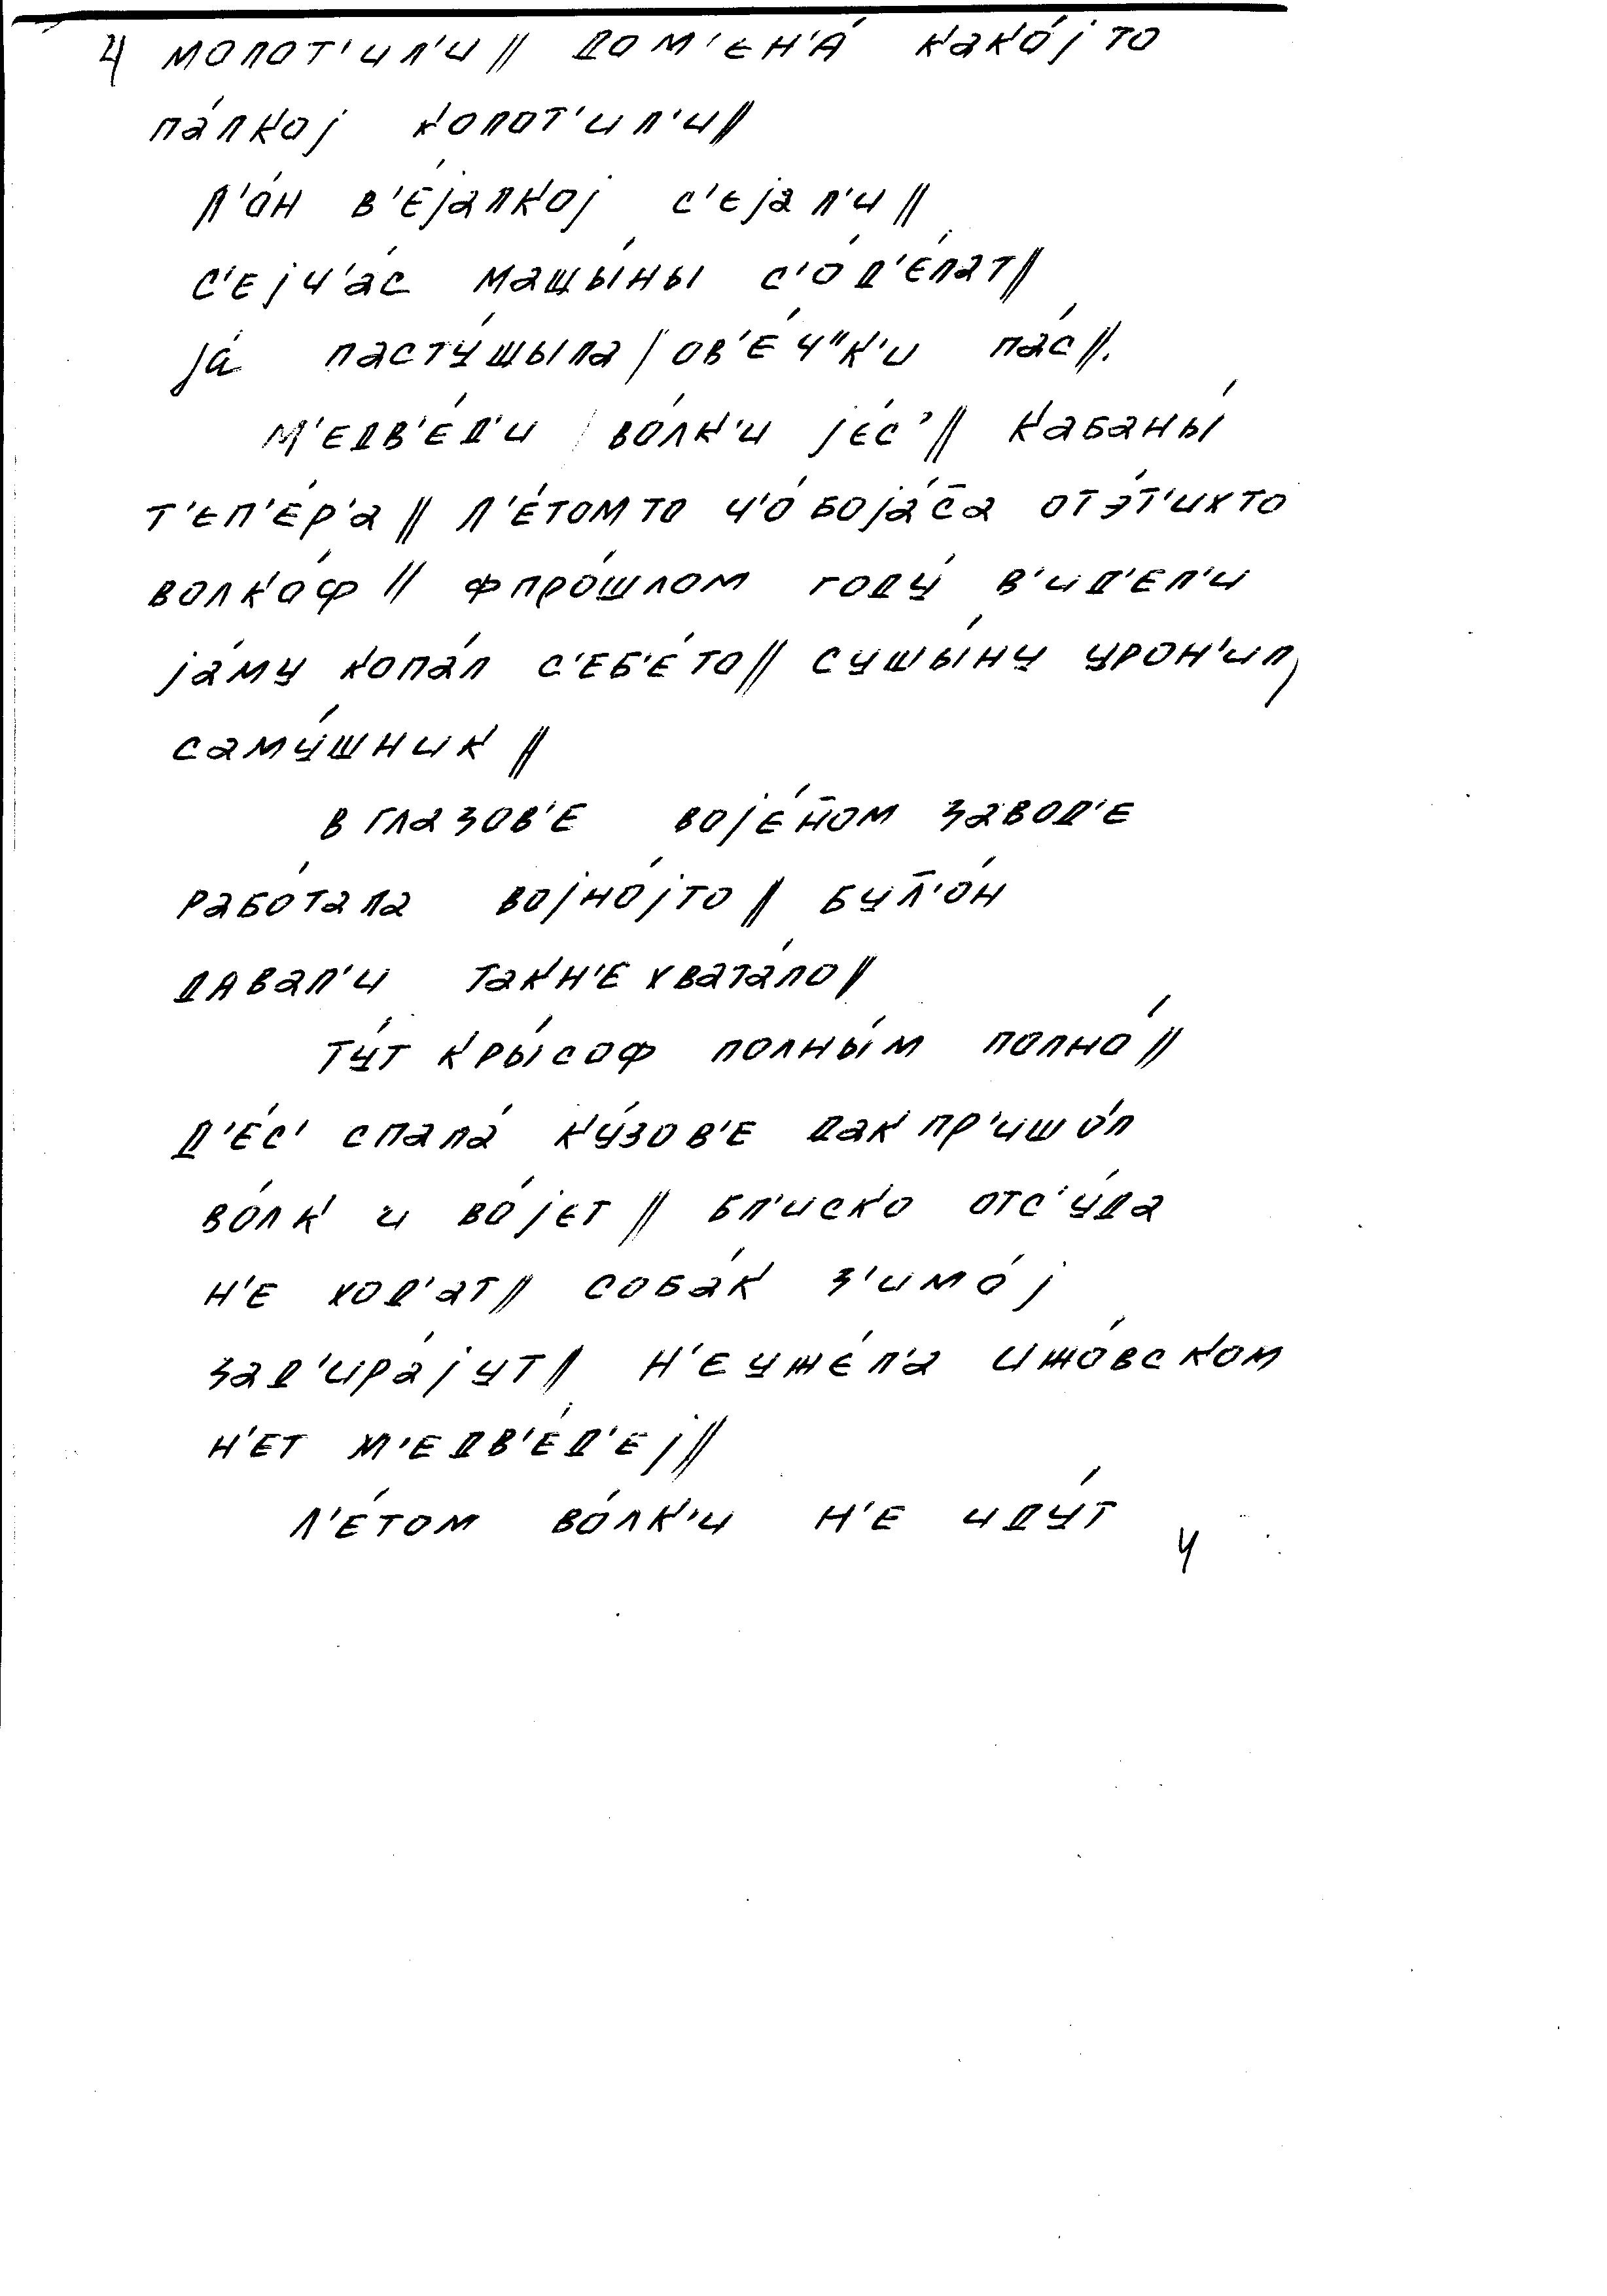 4 молот'ил'и // дом'ен'а́ како́j то
па́лкоj колот'ил'и //
л'о́н в'е́jалкоj с'еjал'и //
с'еjч'а́с машы́ны с'о́ д'е́лат //
jа́ пасту́шыла / ов'е́ч"к'и па́с //.
м'едв'е́д'и / во́лк'и jе́с' // кабаны́
т'еп'е́р'а // л'е́томто ч'о́ боjа́с̄а отэ́т'ихто
волко́ф // фпро́шлом году́ в'ид'ел'и
jа́му копа́л с'еб'е́то // сушы́ну урон'ил,
саму́шник //
в глазов'е воjе́н̄ом завод'е
рабо́тала воjно́jто // бул̄'о́н
давал'и такн'е хвата́ло //
ту́т кры́соф полны́м полно́ //
д'е́с' спала́ ку́зов'е дак пр'ишо́л
во́лк и во́jет // бл'иско отс'у́да
н'е ход'ат // соба́к з'имо́j
зад'ира́jут // н'еуже́л'а ижо́вском
н'ет м'едв'е́д'еj //
л'е́том во́лк'и н'е иду́т
4